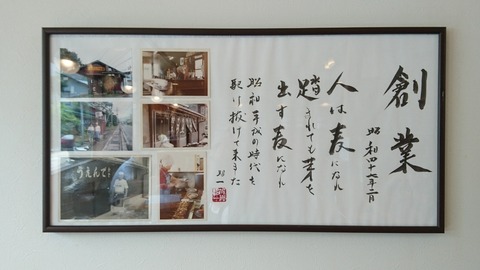 創業
昭和四十七年二月
人は麦になれ
踏まれても芽を
出す麦になれ
昭和平成の時代を
駆け抜けて来た
うえんで